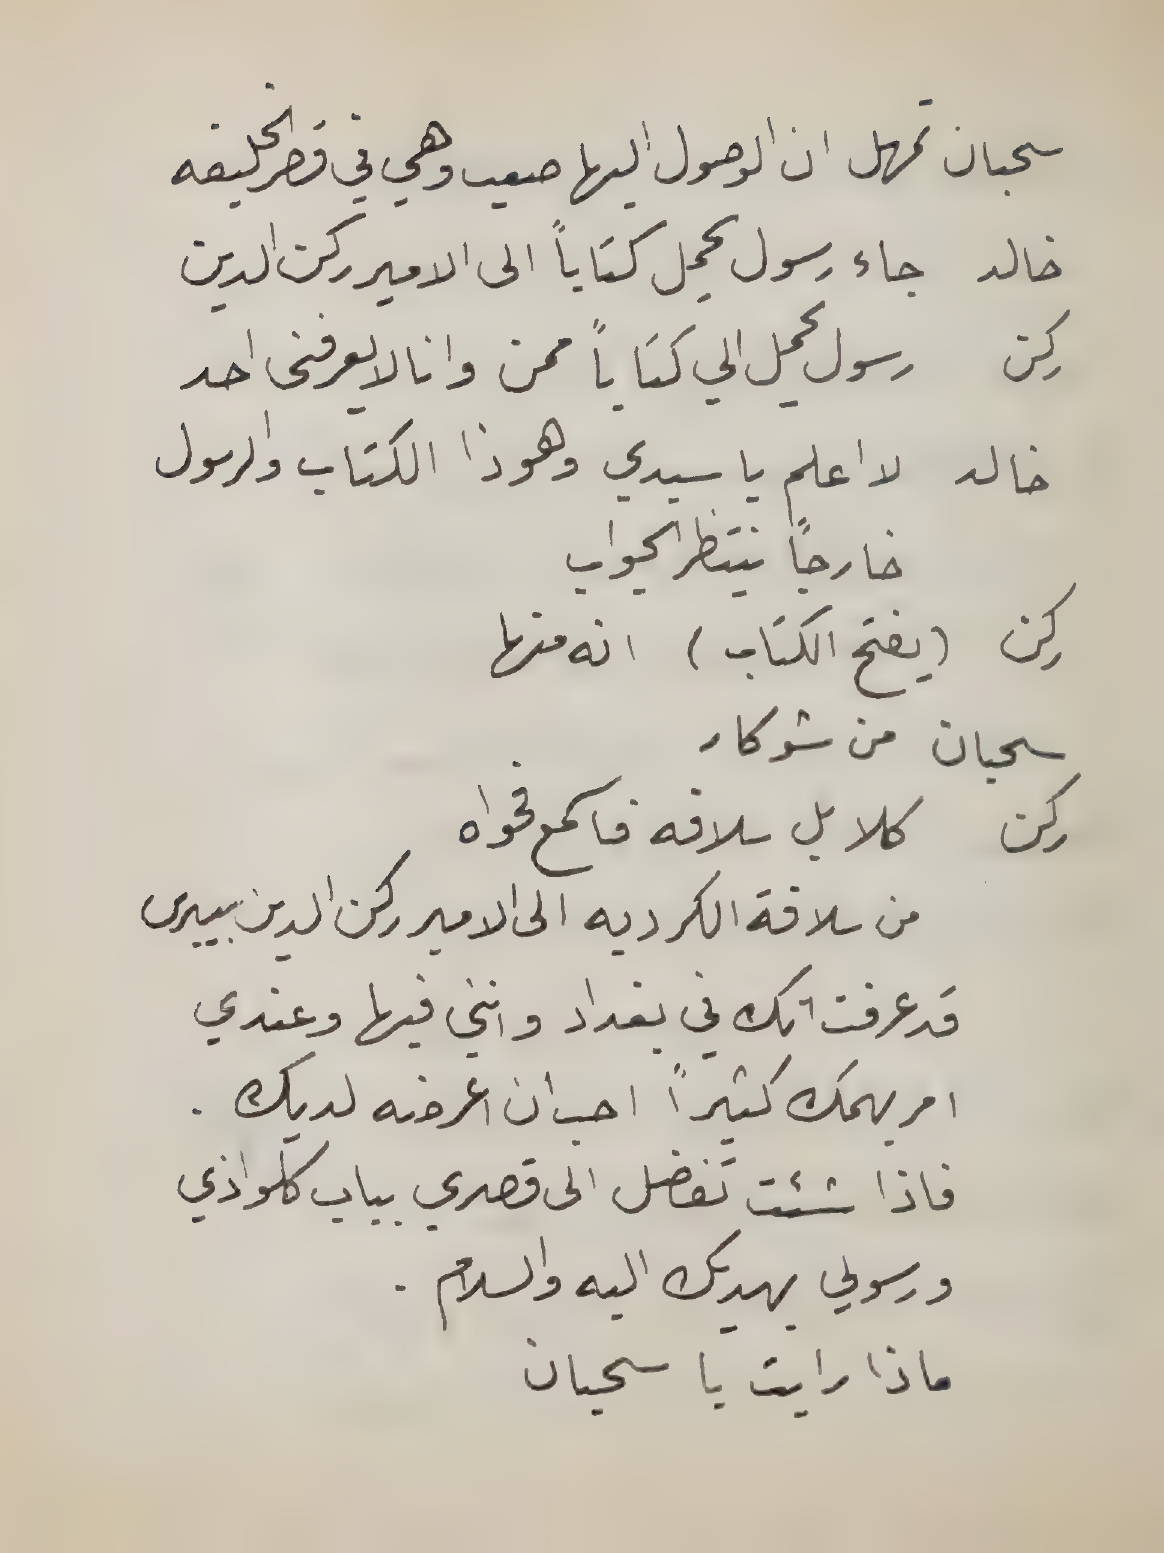 سحبان تمهل ان الوصول اليها صعب وهي في قصر الخليفه
خالد جاء رسول يحمل كتاباً الى الامير ركن الدين
ركن رسول يحمل الي كتاباً ممن وانا لا يعرفنى احد
خالد لا اعلم يا سيدي وهوذا الكتاب والرسول
خارجاً ينتظر الجواب
ركن (يفتح الكتاب) انه منها
سحبان من شوكار
ركن كلا بل سلافه فاسمع فحواه
من سلافة الكرديه الى الامير ركن الدين بيبرس
قد عرفت انك في بغداد وانني فيها وعندي
امر يهمك كثيراً احب ان اعرضه لديك .
فاذا شئت تفضل الى قصري بباب كلواذي
ورسولي يهديك اليه والسلام .
ماذا رايت يا سحبان